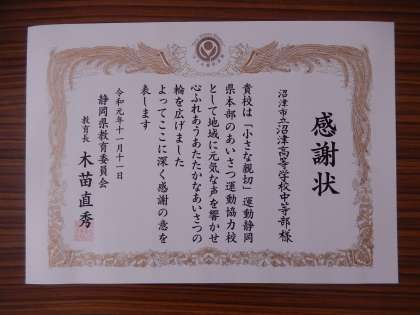 感謝状
沼津市立沼津高等学校中等部様
貴校は「小さな親切」運動静岡
県本部のあいさつ運動協力校
として地域に元気な声を響かせ
心ふれあうあたたかなあいさつの
輪を広げました
よってここに深く感謝の意を
表します
令和元年十一月十一日
静岡県教育委員会
教育長 木苗直秀